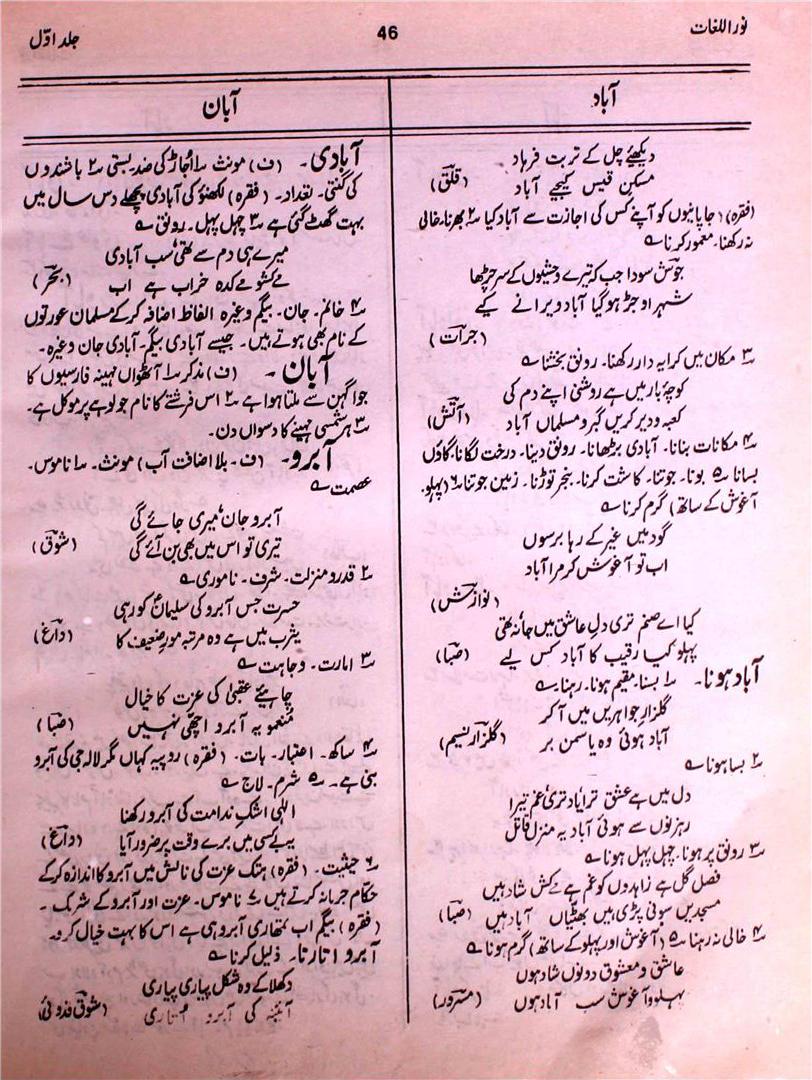 نور اللغات
46
جلد اوّل
آباد
دیکھئے چل کے تربت فرہاد
مسکن قیس کیجیے آباد (قلق)
(فقرہ) جاپانیوں کو آپنے کس کی اجازت سے آباد کیا ۲ بھرنا۔ خالی
نہ رکھنا۔ معمور کرنا ؎
جوشِ سودا جب کہ تیرے وحشیوں کے سر چڑھا
شہر اوجڑ ہوگیا آباد ویرانے کیے
(جرأت)
۳ مکان میں کرایہ دار رکھنا۔ رونق بخشنا ؎
کوچۂ یار میں ہے روشنی اپنے دم کی
کعبہ و دیر کریں گبر و مسلماں آباد (آتش)
۴ مکانات بنانا۔ آبادی بڑھانا۔ رونق دینا۔ درخت لگانا۔ گاؤں
بسانا ۵ بونا۔ جوتنا۔ کاشت کرنا۔ بنجر توڑنا۔ زمین جوتنا ۶ (پہلو۔
آغوش کے ساتھ) گرم کرنا ؎
گود میں غیر کے رہا برسوں
اب تو آغوش کر مرا آباد
(نوازش)
کیا اے صنم تری دلِ عاشق میں جا نہ تھی
پہلو کیا رقیب کا آباد کس لیے (صبا)
آباد ہونا۔ ۱ بسنا۔ مقیم ہونا۔ رہنا ؎
گلزارِ جواہریں میں آ کر
آباد ہوئی وہ یاسمن بر (گلزار نسیم)
۲ بسا ہونا ؎
دل میں ہے عشق ترا یاد تری غم تیرا
رہزنوں سے ہوئی آباد یہ منزل قاتل
۳ رونق پر ہونا۔ چہل پہل ہونا ؎
فصل گل ہے زاہدوں کو غم ہے مے کش شاد ہیں
مسجدیں سونی پڑی ہیں بھٹیاں آباد ہیں (صبا)
۴ خالی نہ رہنا ۵ (آغوش اور پہلو کے ساتھ) گرم ہونا ؎
عاشق و معشوق دونوں شاد ہوں
پہلو و آغوش سب آباد ہوں (سرور)
آبان
آبادی۔ (ف) مونث ۱ اُجاڑ کی ضد۔ بستی ۲ باشندوں
کی گنتی۔ تعداد۔ (فقرہ) لکھنؤ کی آبادی پچھلے دس سال میں
بہت گھٹ گئی ہے ۳ چہل پہل۔ رونق ؎
میرے ہی دم سے تھی سب آبادی
مے کشو مے کدہ خراب ہے اب (بحر)
۴ خانم۔ جان۔ بیگم وغیرہ الفاظ اضافہ کرکے مسلمان عورتوں
کے نام بھی ہوتے ہیں۔ جیسے آبادی بیگم۔ آبادی جان وغیرہ۔
آبان۔ (ف) مذکر ۱ آٹھواں مہینہ فارسیوں کا
جو اگہن سے ملتا ہوا ہے ۲ اس فرشتے کا نام جو لوہے پر موکل ہے۔
۳ ہر شمسی مہینے کا دسواں دن۔
آبرو۔ (ف۔ بلا اضافت آب) مونث۔ ۱ ناموس۔
عصمت ؎
آبرو جان میری جائے گی
تیری تو اس میں بھی بن آئے گی (شوق)
۲ قدر و منزلت۔ شرف۔ ناموری ؎
حسرت جس آبرو کی سلیمان کو رہی
یثرب میں ہے وہ مرتبہ مور ضعیف کا (داغ)
۳ امارت۔ وجاہت ؎
چاہیئے عقبیٰ کی عزت کا خیال
منعمو یہ آبرو اچھی نہیں (صبا)
۴ ساکھ۔ اعتبار۔ بات۔ (فقرہ) روپیہ کہاں مگر لالہ جی کی آبرو
بنی ہے۔ ۵ شرم۔ لاج ؎
الٰہی اشکِ ندامت کی آبرو رکھنا
یہ بے کسی میں برے وقت پر ضرور آیا (داغ)
۶ حیثیت۔ (فقرہ) ہتک عزت کی نالش میں آبرو کا اندازہ کرکے
حکام جرمانہ کرتے ہیں ۷ ناموس۔ عزت اور آبرو کے شریک۔
(فقرہ) بیگم اب تمھاری آبرو ہی ہے اس کا بہت خیال کرو۔
آبرو اتارنا۔ ذلیل کرنا ؎
دکھلا کے وہ شکل پیاری پیاری
آئینہ کی آبرو اُتاری (شوق قدوائی)